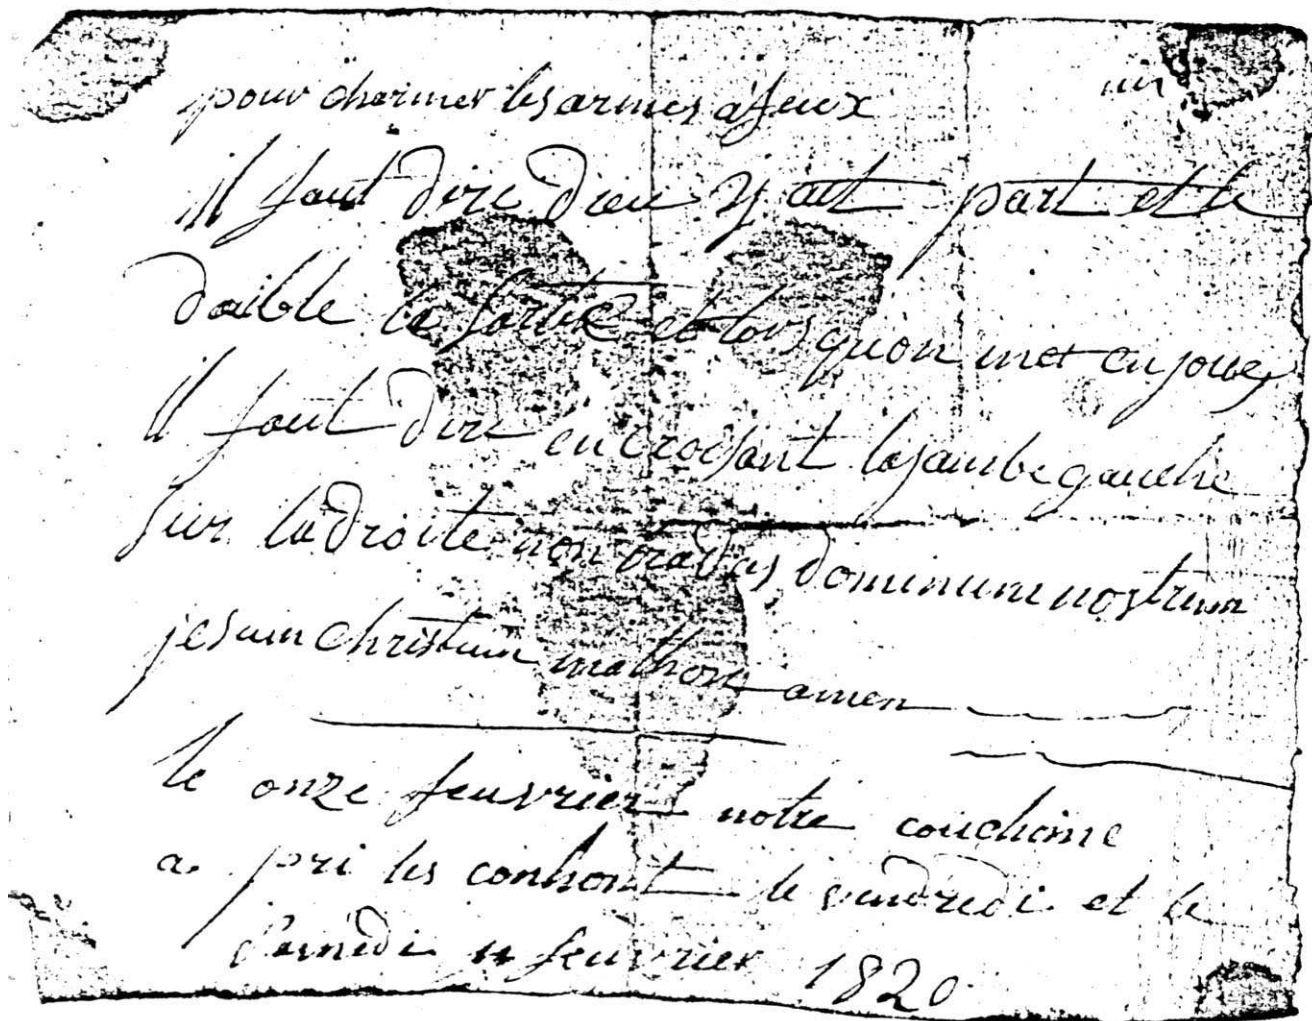 pour charmer les armes a feux
il faut dire dieu y ait part et le
daible la sortie et lors quon met en joue
il faut dire en croisant la jambe gauche
sur la droite non tradas dominum nostrum
jesum christum mathon amen
le onze feuvrier notre couchoine
a pri les le vendredi et le
samedi 11 feuvrier 1820